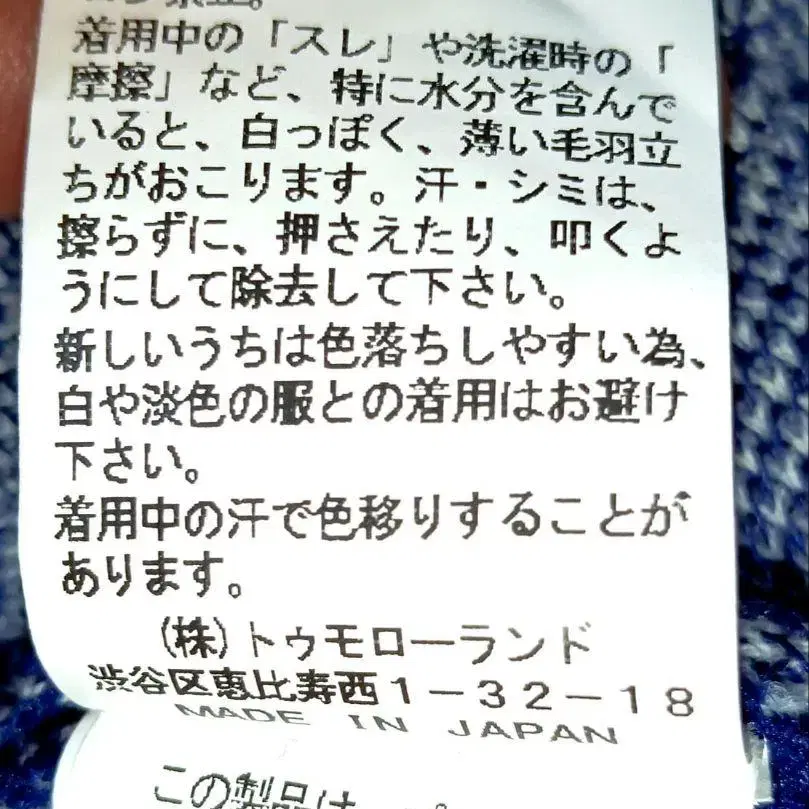 着用中の「スレ」や洗濯時の「
摩擦」など、特に水分を含んで
いると、白っぽく、薄い毛羽立
ちがおこります。汗・シミは、
擦らずに、押さえたり、叩くよ
うにして除去して下さい。
新しいうちは色落ちしやすい為、
白や淡色の服との着用はお避け
下さい。
着用中の汗で色移りすることが
あります。
(株)トゥモローランド
渋谷区恵比寿西1-32-18
MADE IN JAPAN
この製品は